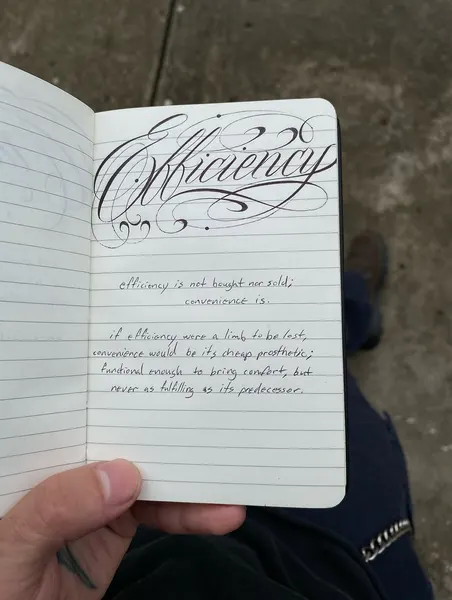 Efficiency
efficiency is not bought nor sold;
convenience is.
if efficiency were a limb to be lost,
convenience would be its cheap prosthetic;
functional enough to bring comfort, but
never as fulfilling as its predecessor.